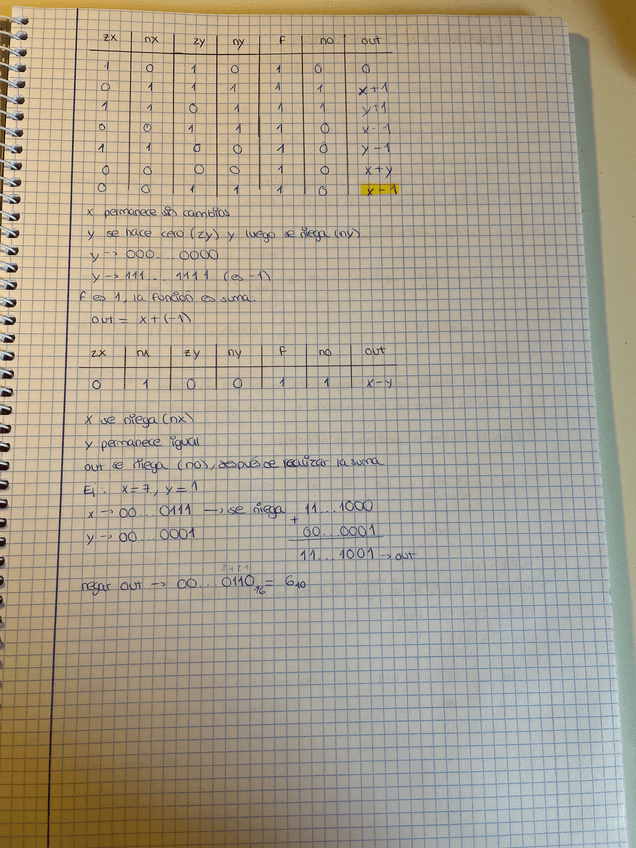 zx nx zy ny f no out
1 0 1 0 1 0 0
0 1 1 1 1 1 x+1
1 1 0 1 1 1 y+1
0 0 1 1 1 0 x-1
1 1 0 0 1 0 y-1
0 0 0 0 1 0 x+y
0 0 1 1 1 0 x-1
x permanece sin cambios
y se hace cero (zy) y luego se niega (ny)
y → 000...0000
y → 111...1111 (es -1)
f es 1, la función es suma.
out = x+(-1)
zx nx zy ny f no out
0 1 0 0 1 1 x-y
x se niega (nx)
y permanece igual
out se niega (no), después de realizar la suma
Ej: x=7, y=1
x → 00...0111 → se niega 11...1000
+
y → 00...0001 00...0001
11...1001 → out
8421
negar out → 00...0110₁₆ = 6₁₀